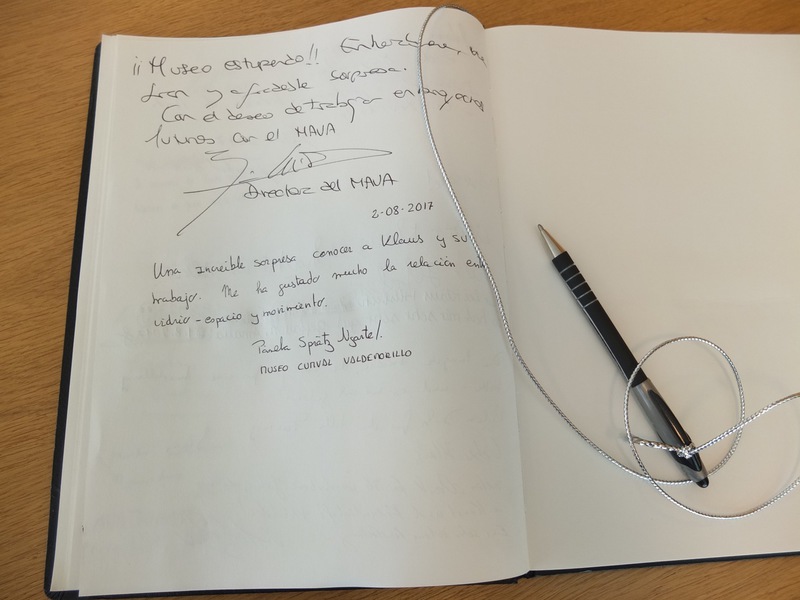 ¡¡Museo estupendo!! Enhorabuena,
gran y agradable sorpresa.
Con el deseo de trabajar en proyectos
futuros con el MAVA
Directora del MAVA
2-08-2017
Una increíble sorpresa conocer a Klaus y su
trabajo. Me ha gustado mucho la relación entre
vidrio-espacio y movimiento.
MUSEO CUNVAL VALDEMORILLO